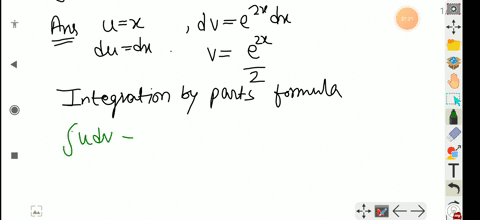 Ans u=x , dv=e^{2x}dx
du=dx . v= e^{2x}/2
Integration by parts formula
∫udv -